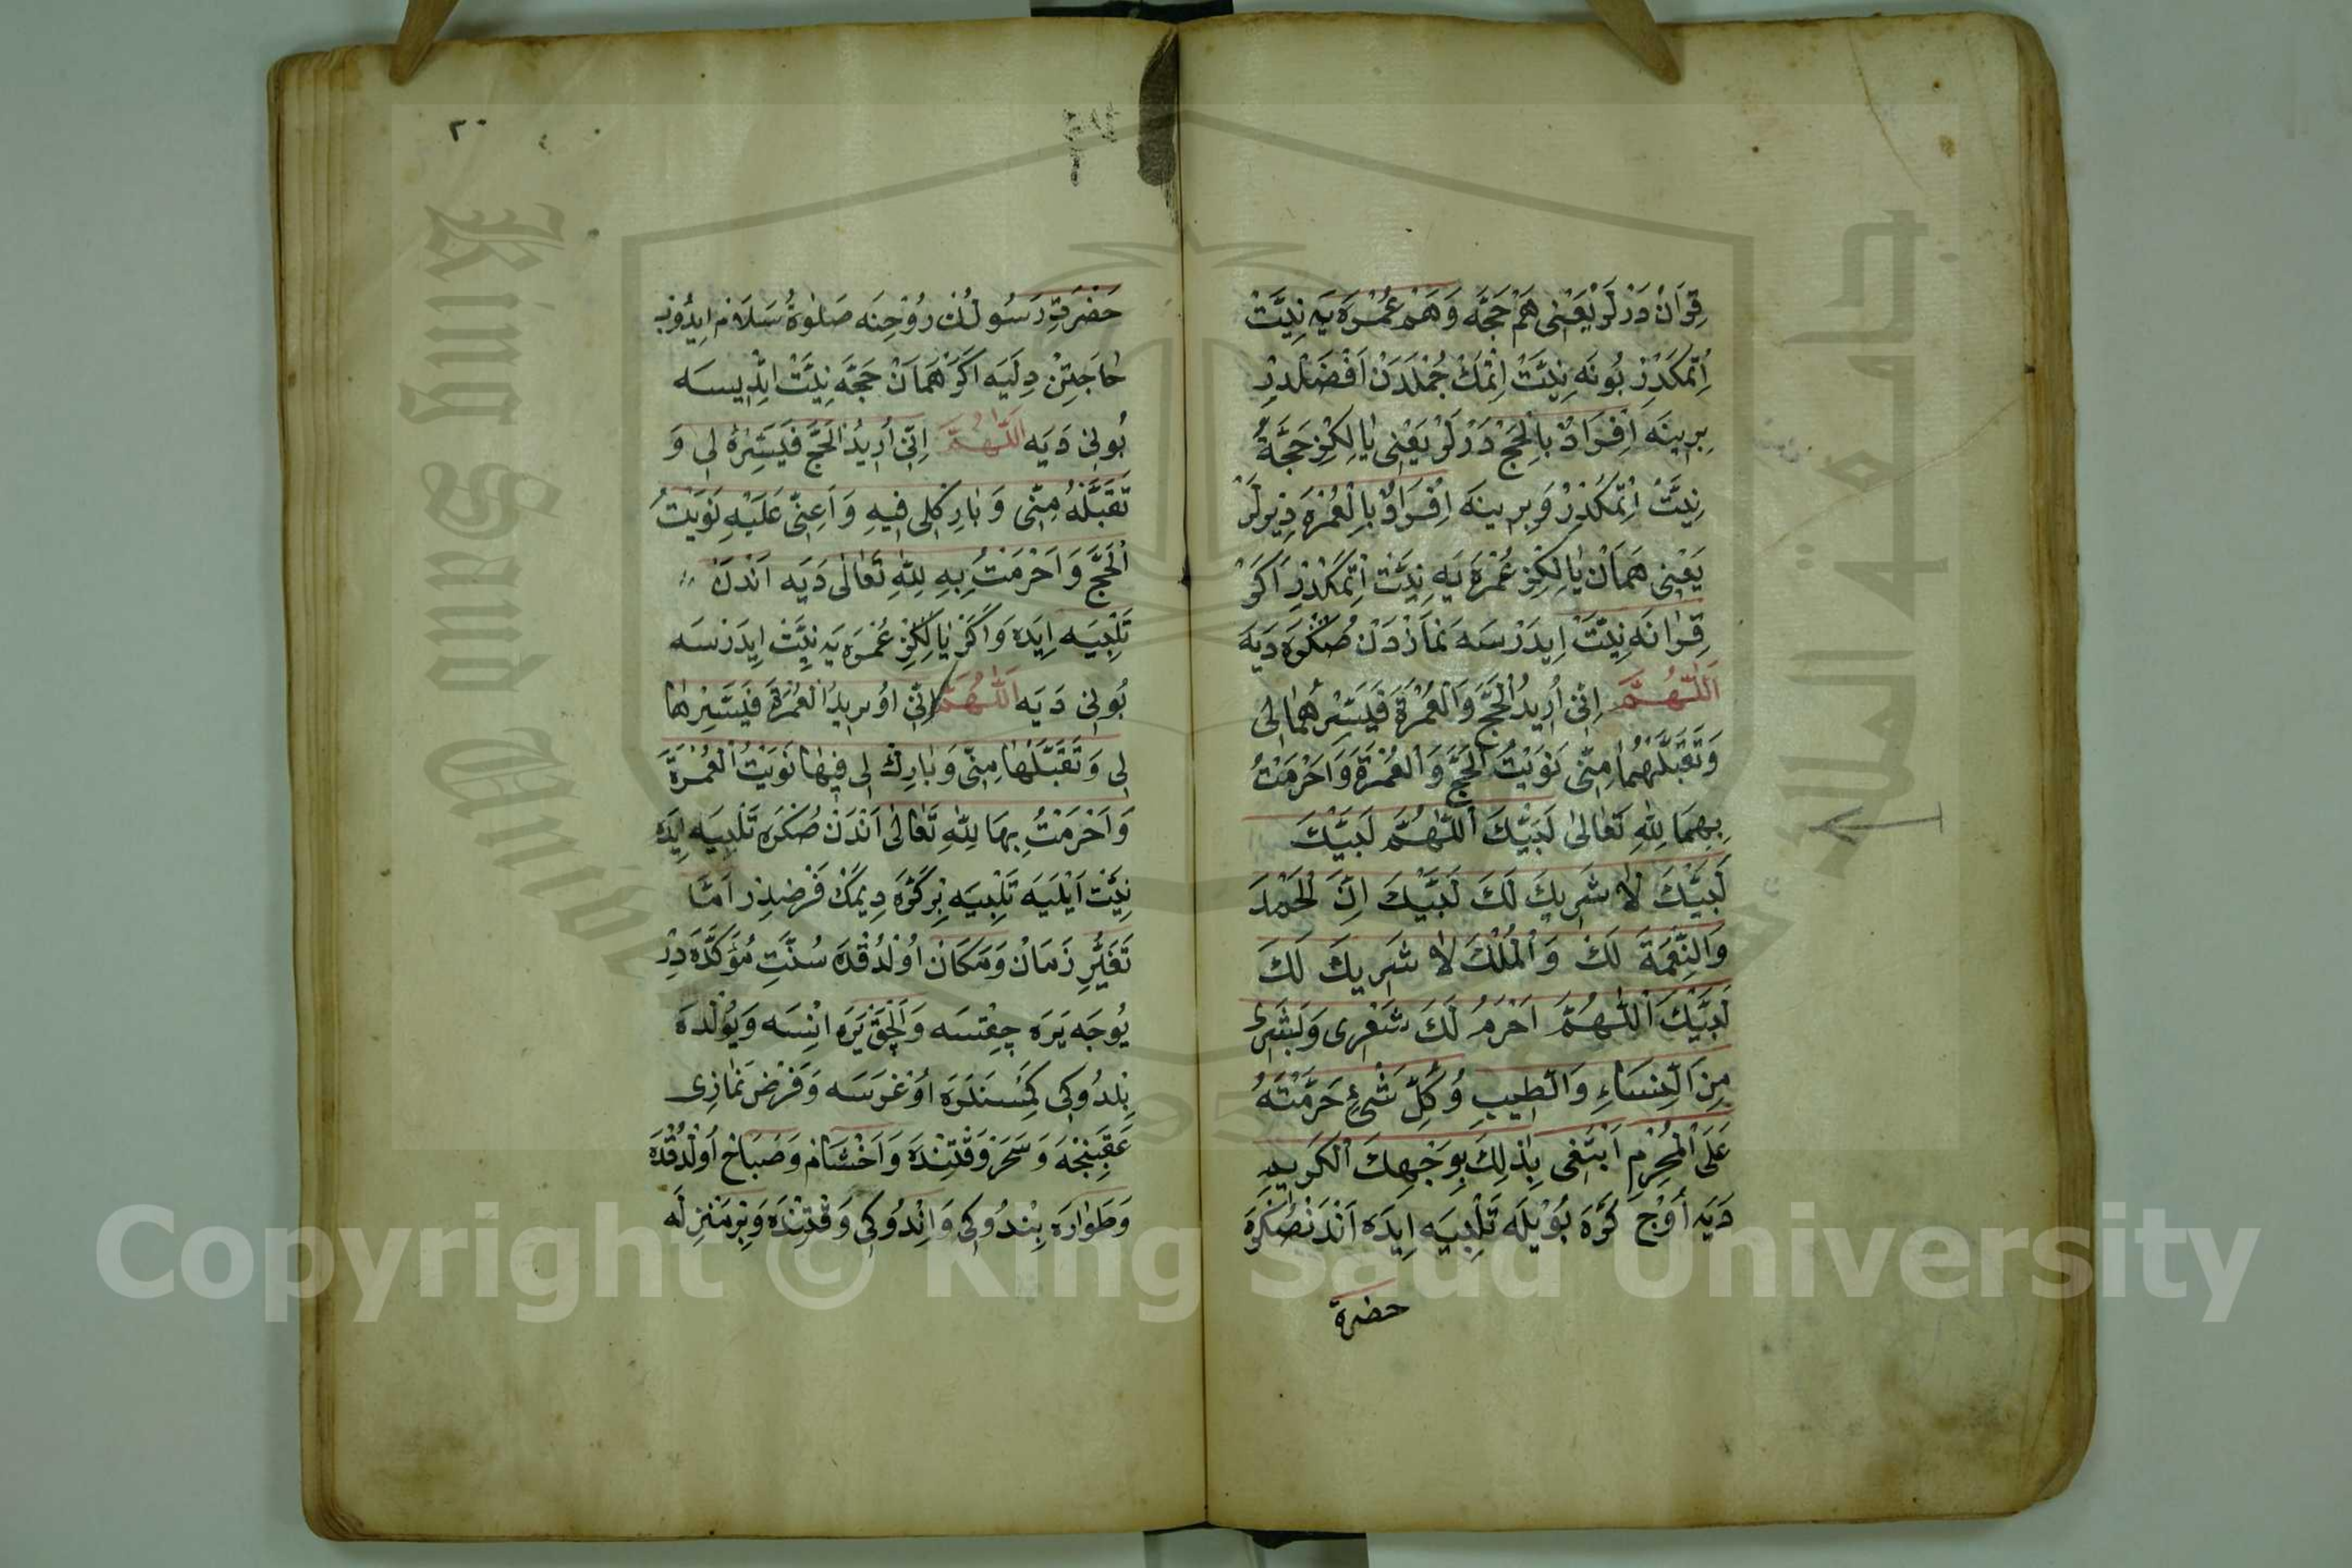 قِرَانْ دَرْلَرْ يَعْنِى هَمْ حَجَّه وَهَمْ عُمْرَه يَه نِيَّتْ
اِتْمَكْدِرْ بُونَه نِيَّتْ اِتْمَكْ جُمْلَدَنْ اَفْضَلْدِرْ
بِرِينَه اِفْرَادْ بِالْحَجّْ دَرْلَرْ يَعْنِى يَالِكِزْ حَجَّه
نِيَّتْ اِتْمَكْدِرْ وَبِرِينَه اِفْرَادْ بِالْعُمْرَه دِيرْلَرْ
يَعْنِى هَمَانْ يَالِكِزْ عُمْرَه يَه نِيَّتْ اِتْمَكْدِرْ اَكَرْ
قِرَانَه نِيَّتْ اِيدَرْسَه نَمَازْدَنْ صُكْرَه دَيَه
اَللّٰهُمَّ اِنِّى اُرِيدُ الْحَجَّ وَالْعُمْرَةَ فَيَسِّرْهُمَا لِى
وَتَقَبَّلْهُمَا مِنِّى نَوَيْتُ الْحَجَّ وَالْعُمْرَةَ وَاَحْرَمْتُ
بِهِمَا لِلّٰهِ تَعَالٰى لَبَّيْكَ اَللّٰهُمَّ لَبَّيْكَ
لَبَّيْكَ لَا شَرِيكَ لَكَ لَبَّيْكَ اِنَّ الْحَمْدَ
وَالنِّعْمَةَ لَكَ وَالْمُلْكَ لَا شَرِيكَ لَكَ
لَبَّيْكَ اَللّٰهُمَّ اَحْرَمُ لَكَ شَعْرِى وَبَشَرِى
مِنَ النِّسَاءِ وَالطِّيبِ وَكُلِّ شَىْءٍ حَرَّمْتَهُ
عَلَى الْمُحْرِمِ اَبْتَغِى بِذٰلِكَ بِوَجْهِكَ الْكَرِيمِ
دَيَه اُوْجْ كَرَّه بُويْلَه تَلْبِيَه اِيدَه اَنْدَنْصُكْرَه
حضرة
٢٠
حَضْرَتِ رَسُولُكْ رُوْحِنَه صَلٰوةُ سَلَامْ اِيدُوبْ
حَاجَتِنْ دِلَيَه اَكَرْ هَمَانْ حَجَّه نِيَّتْ اِيدِيسَه
بُونِى دَيَه اَللّٰهُمَّ اِنِّى اُرِيدُ الْحَجَّ فَيَسِّرْهُ لِى وَ
تَقَبَّلْهُ مِنِّى وَبَارِكْ لِى فِيهِ وَاَعِنِّى عَلَيْهِ نَوَيْتُ
الْحَجَّ وَاَحْرَمْتُ بِهِ لِلّٰهِ تَعَالٰى دَيَه اَنْدَنْ
تَلْبِيَه اِيدَه وَاَكَرْ يَالِكِزْ عُمْرَه يَه نِيَّتْ اِيدَرْسَه
بُونِى دَيَه اَللّٰهُمَّ اِنِّى اُورِيدُ الْعُمْرَةَ فَيَسِّرْهَا
لِى وَتَقَبَّلْهَا مِنِّى وَبَارِكْ لِى فِيهَا نَوَيْتُ الْعُمْرَةَ
وَاَحْرَمْتُ بِهَا لِلّٰهِ تَعَالٰى اَنْدَنْ صُكْرَه تَلْبِيَه اِيدَه
نِيَّتْ اَيْلَيَه تَلْبِيَه بِرْ كَرَّه دِيمَكْ فَرْضْدِرْ اَمَّا
تَغَيُّرِ زَمَانْ وَمَكَانْ اُوْلْدُقْدَه سُنَّتِ مُؤَكَّدَه دِرْ
يُوجَه يَرَه چِقْسَه وَاَلْچَقْ يَرَه اِنْسَه وَيُوْلْدَه
بِلْدُوكِى كِمْسَنَلَرَه اُوْغْرَسَه وَفَرْضْ نَمَازِى
عَقِبِنْجَه وَسَحَرْ وَقْتِنْدَه وَاَخْشَامْ وَصَبَاحْ اُوْلْدُقْدَه
وَطَوَارَه بِنْدُوكِى وَاِنْدُوكِى وَقْتِنْدَه وَبِرْ مَنْزِلَه
Copyright © King Saud University